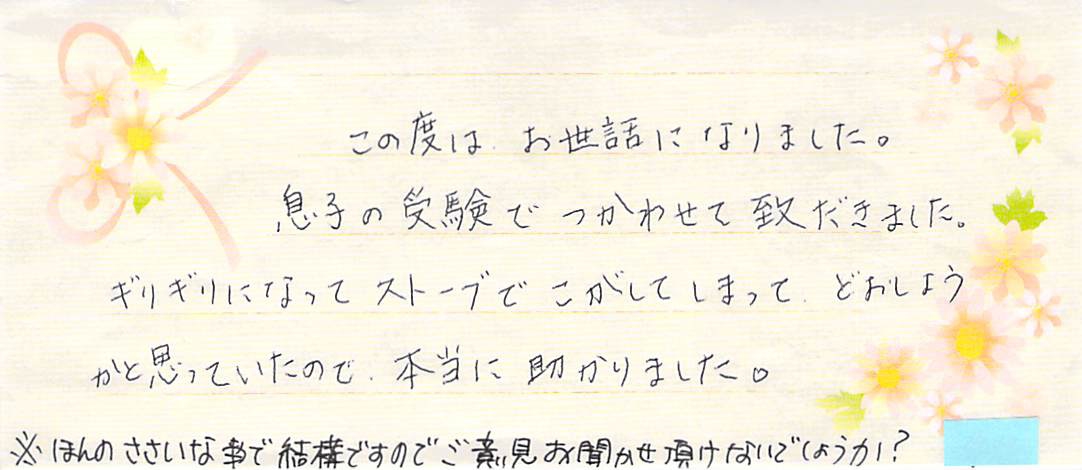 この度は、お世話になりました。
息子の受験でつかわせて致だきました。
ギリギリになってストーブでこがしてしまって、どおしよう
かと思っていたので、本当に助かりました。
※ほんのささいな事で結構ですのでご意見お聞かせ頂けないでしょうか?